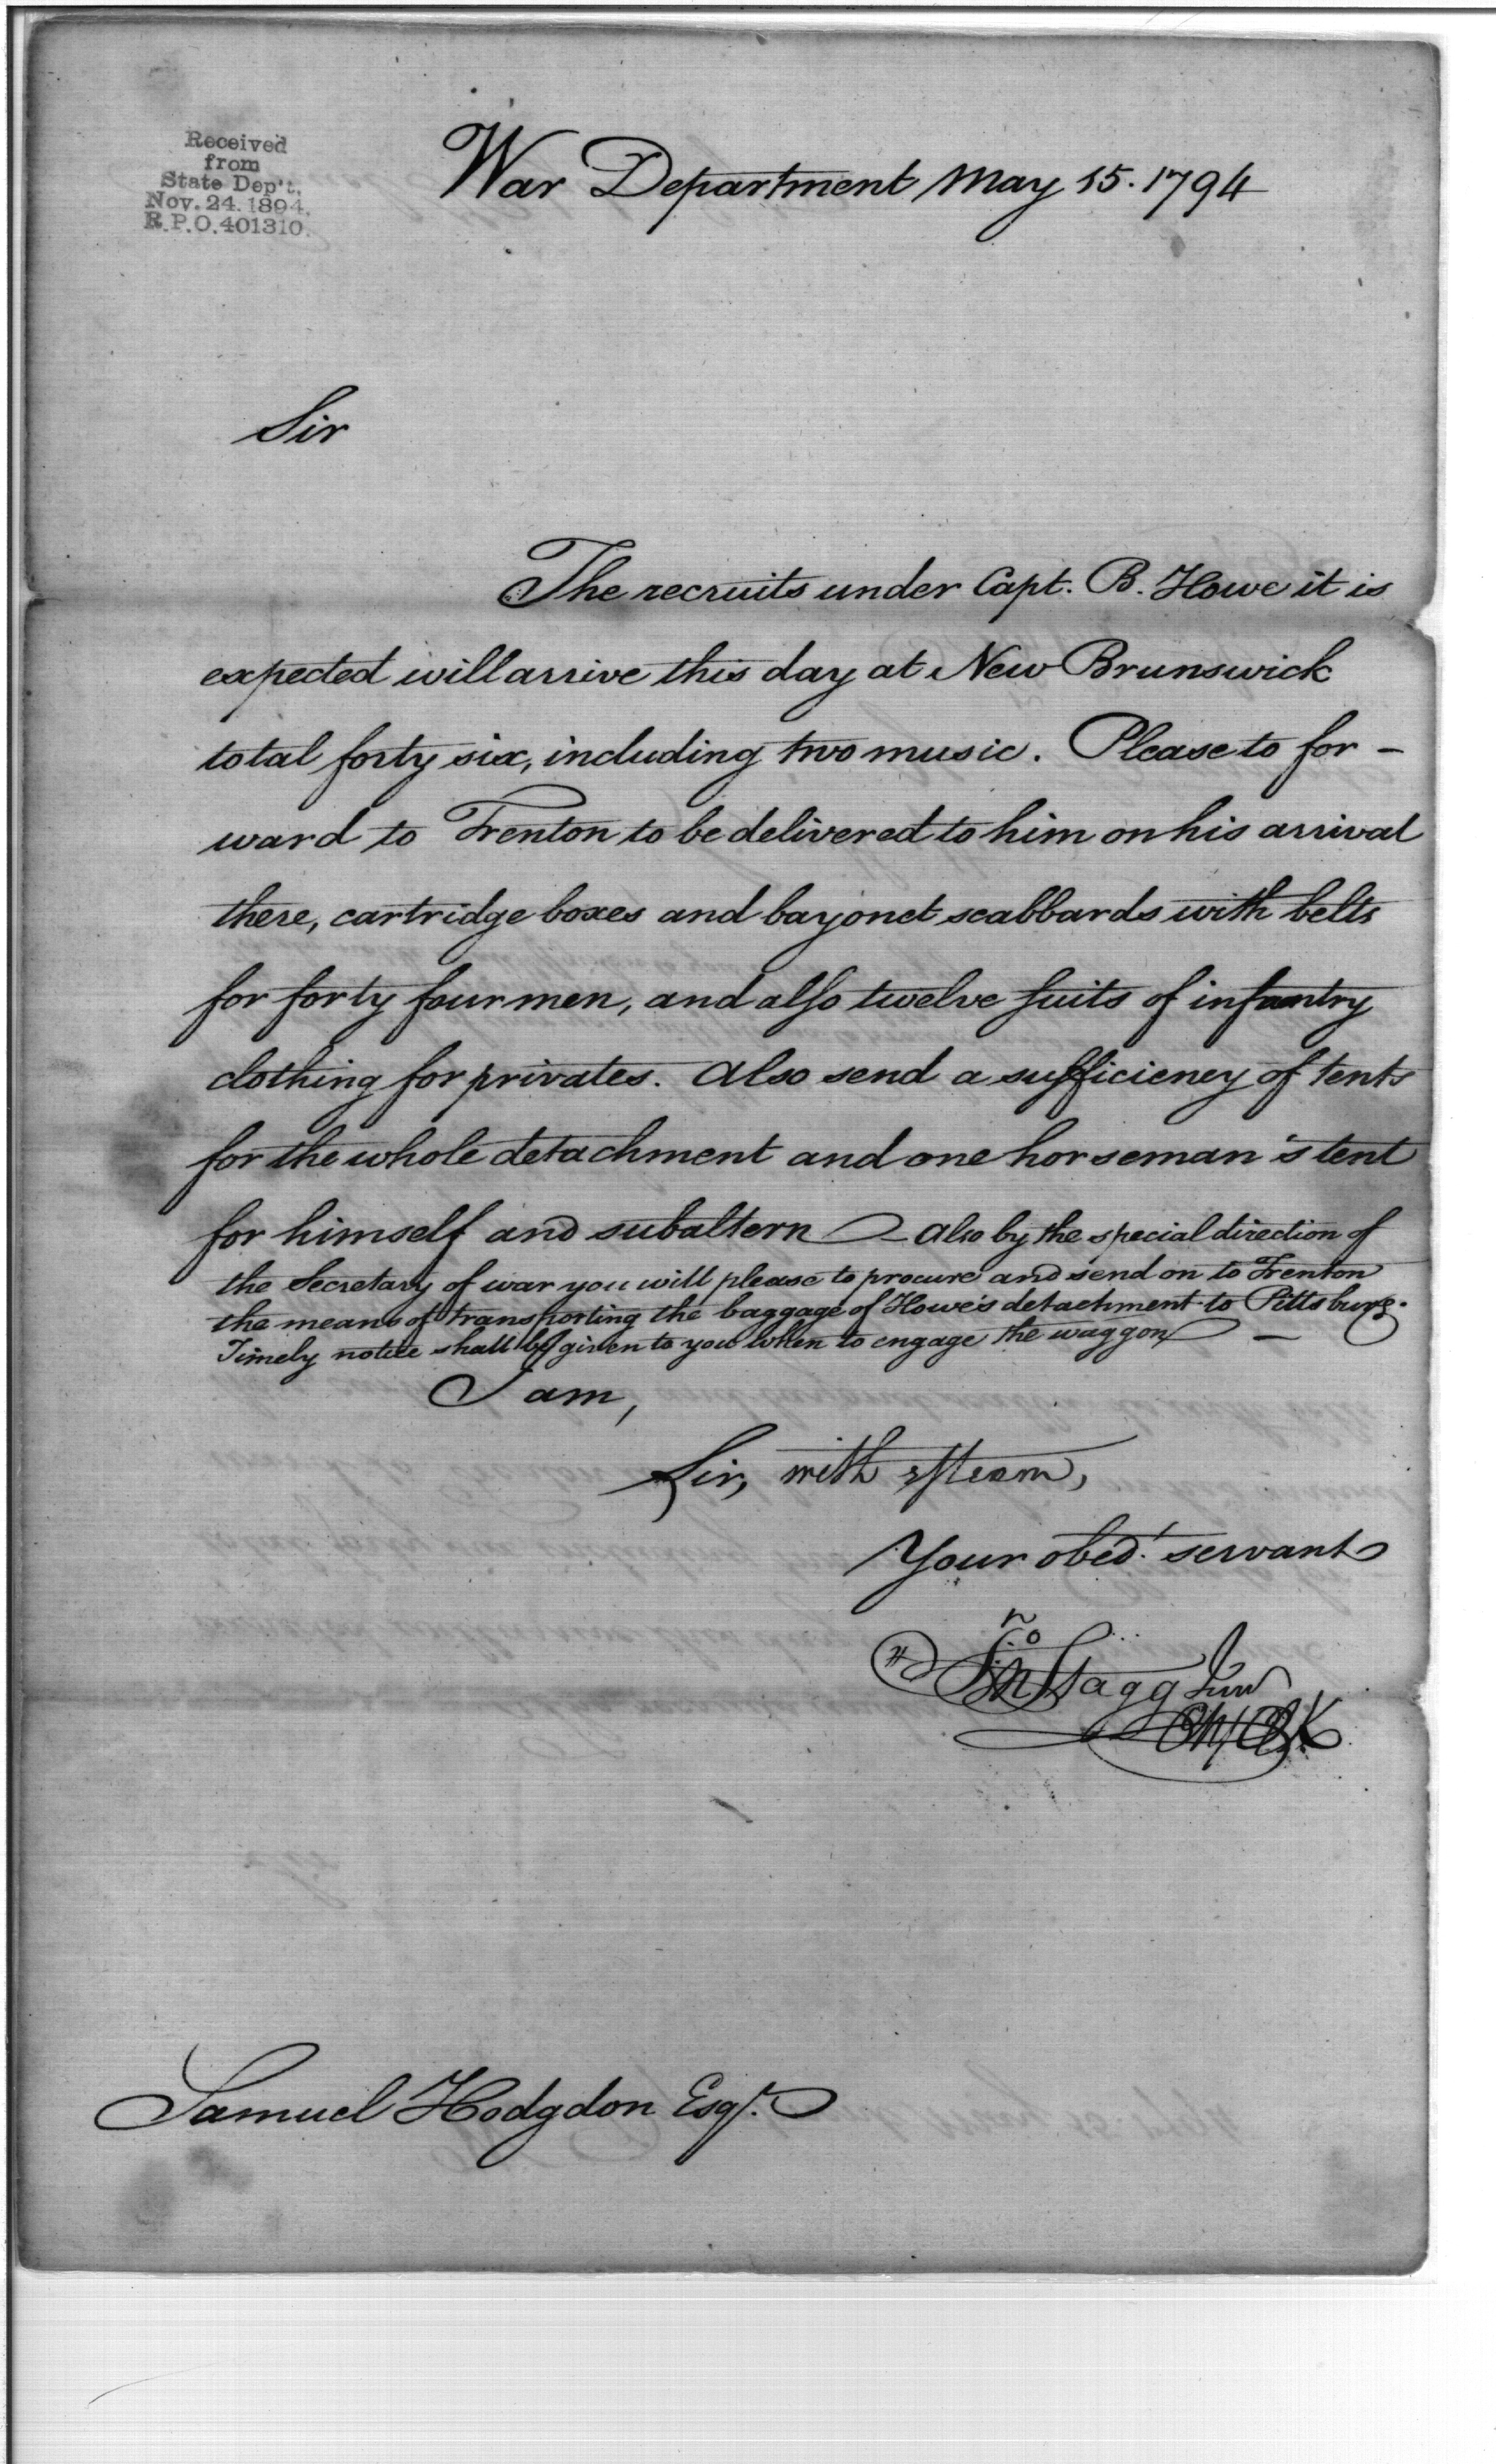 Received
from
State Dep't.
Nov. 24. 1894.
R.P.O. 401310.
War Department May 15. 1794
Sir
The recruits under Capt. B. Howe it is
expected will arrive this day at New Brunswick
total forty six, including two music. Please to for-
ward to Trenton to be delivered to him on his arrival
there, cartridge boxes and bayonet scabbards with belts
for forty four men, and alſo twelve ſuits of infantry
clothing for privates. Also send a sufficiency of tents
for the whole detachment and one horseman's tent
for himself and subaltern — also by the special direction of
the Secretary of war you will please to procure and send on to Trenton
the means of transporting the baggage of Howe's detachment to Pittsburg.
Timely notice shall be given to you when to engage the waggon —
I am,
Sir, with eſteem,
Your obed.t servant
Jno Stagg Junr
Ch. Clk
Samuel Hodgdon Esqr.